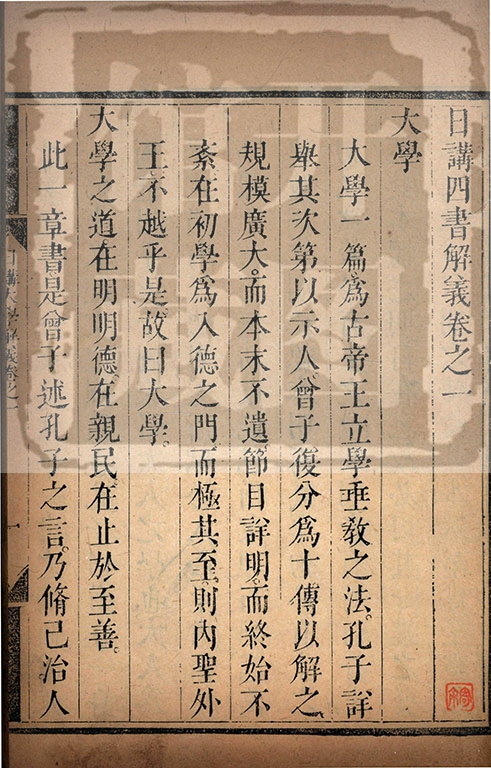 日講四書解義卷之一
大學
大學一篇。爲古帝王立學垂敎之法。孔子詳
舉其次第以示人。曾子復分爲十傳以解之。
規模廣大。而本末不遺。節目詳明。而終始不
紊。在初學爲入德之門。而極其至。則內聖外
王。不越乎是。故曰大學。
大學之道。在明明德。在親民。在止於至善。
此一章書。是曾子述孔子之言。乃脩己治人